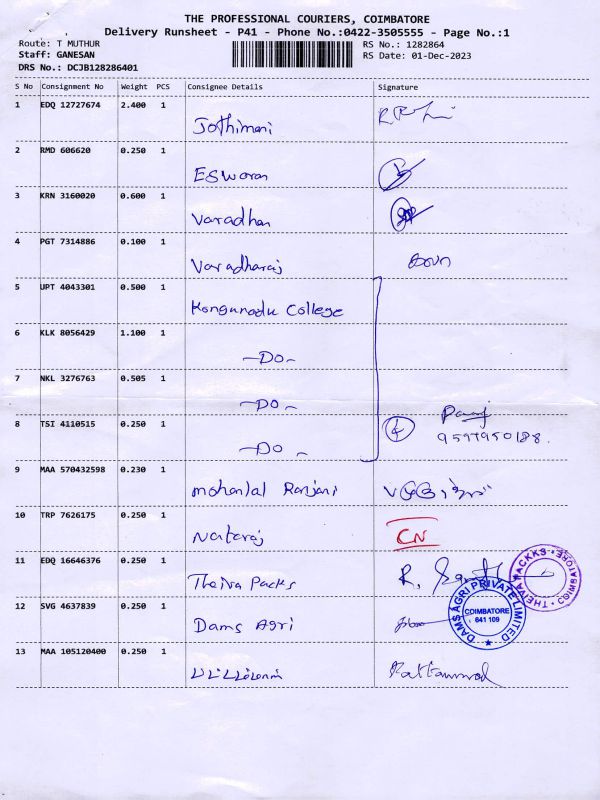 THE PROFESSIONAL COURIERS, COIMBATORE
Delivery Runsheet - P41 - Phone No.:0422-3505555 - Page No.:1
Route: T MUTHUR RS No.: 1282864
Staff: GANESAN RS Date: 01-Dec-2023
DRS No.: DCJB128286401
S No Consignment No Weight PCS Consignee Details Signature
1 EDQ 12727674 2.400 1
Jothimani
2 RMD 606620 0.250 1
ESWaran
3 KRN 3160020 0.600 1
Varadhan
4 PGT 7314886 0.100 1
Varadharaj
5 UPT 4043301 0.500 1
Kongunadu College
6 KLK 8056429 1.100 1
-DO-
7 NKL 3276763 0.505 1
-DO-
8 TSI 4110515 0.250 1
-DO-
9597950188.
9 MAA 570432598 0.230 1
mohanlal Ranjani
10 TRP 7626175 0.250 1
Nataraj CN
11 EDQ 16646376 0.250 1
Theiva Packs
THEIVA PACKKS * COIMBATORE *
12 SVG 4637839 0.250 1
Dams Agri
DAMS AGRI PRIVATE LIMITED
COIMBATORE
641 109
13 MAA 105120400 0.250 1